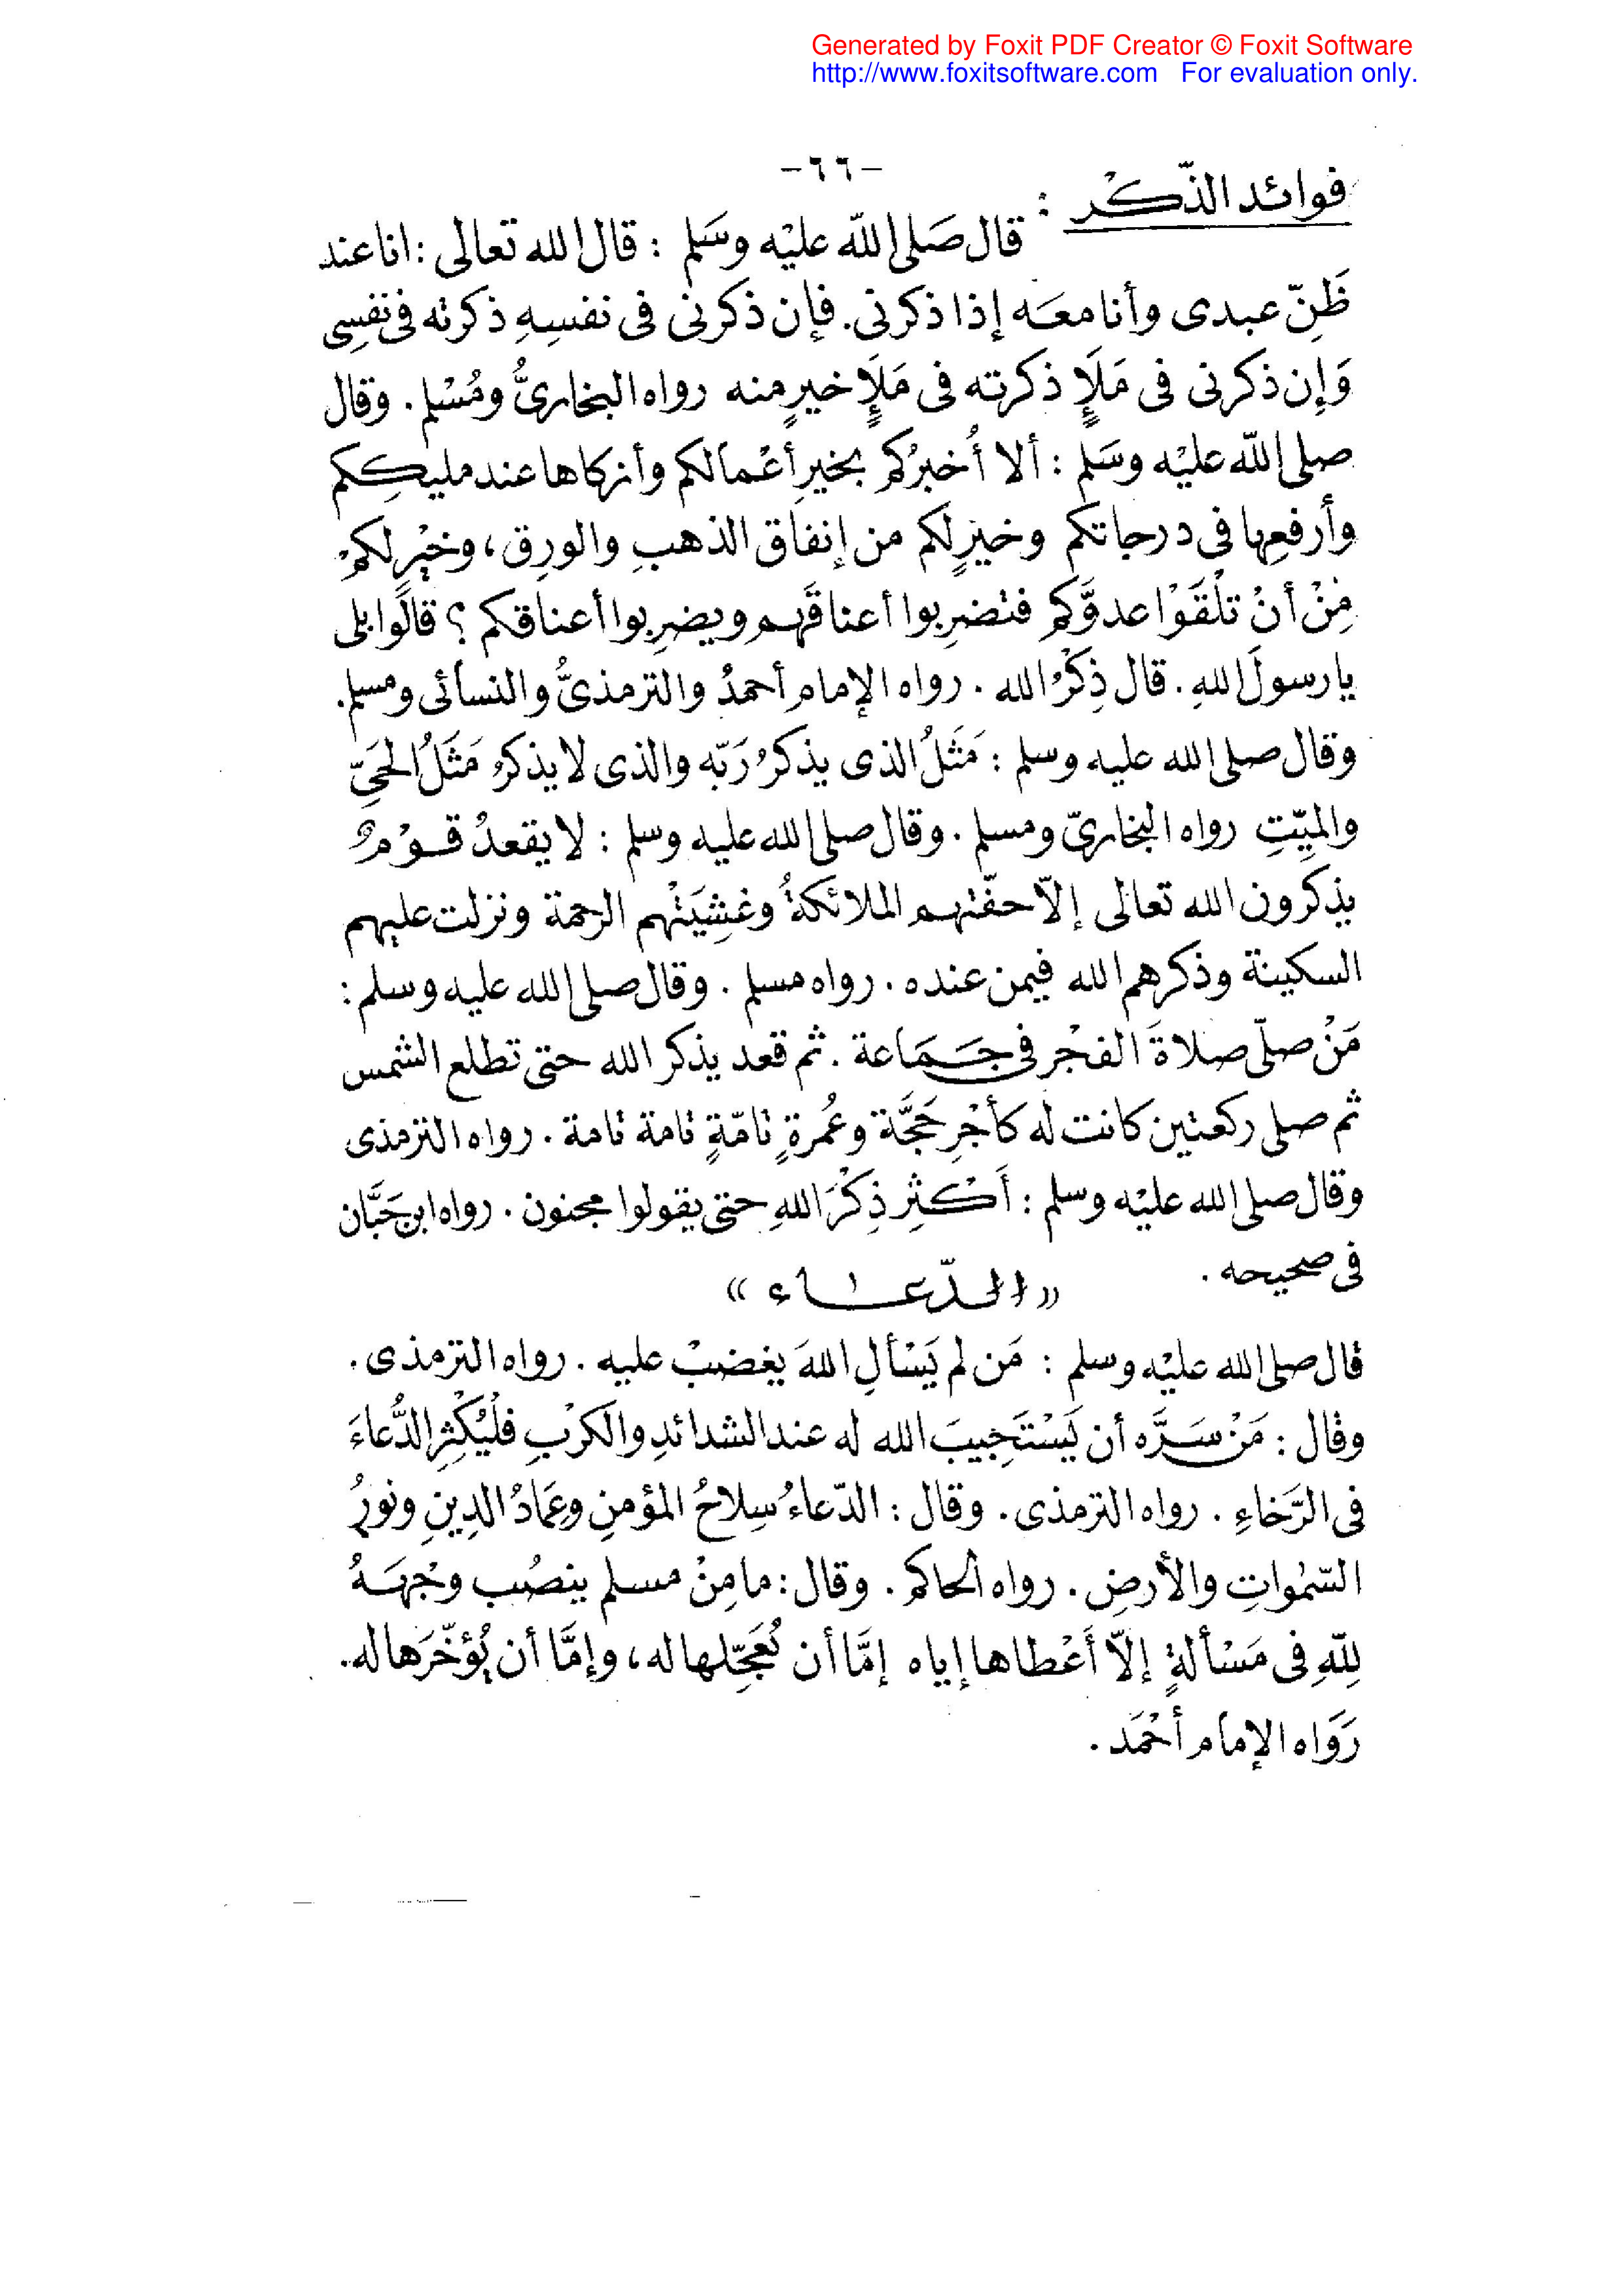 Generated by Foxit PDF Creator © Foxit Software
http://www.foxitsoftware.com For evaluation only.
-٦٦-
فوائد الذّكْر :
قال صَلى الله عليْه وسَلم : قال الله تعالى : انا عند
ظَنِّ عبدى وأنا معَه إذا ذكرنى. فإن ذكرنى فى نفسِهِ ذكرته فى نفسِى
وَإِن ذكرنى فى مَلَإٍ ذكرته فى مَلَإٍ خيرٍ منه رواه البخارىُّ ومُسْلم . وقال
صلى الله عليْه وسَلم : ألا أُخبرُكم بخيرِ أعْمالكم وأزكاها عند مليكِكم
وأرفعِها فى درجاتكم وخيرٍ لكم من إنفاق الذهبِ والورِق، وخيْرٍ لكمْ
مِنْ أنْ تلْقَوْا عدوَّكم فتضرِبوا أعناقَهم ويضرِبوا أعناقكم ؟ قالوا بلى
يا رسولَ اللهِ . قال ذِكْرُ الله . رواه الإمام أحمدُ والترمذىُّ والنسائى ومسلم.
وقال صلى الله عليه وسلم : مَثَلُ الذى يذكرُ رَبّه والذى لا يذكرُ مَثَلُ الحَىِّ
والميِّتِ رواه البخارىّ ومسلم . وقال صلى الله عليه وسلم : لا يقعدُ قوْمٌ
يذكرون الله تعالى إلاّ حفّتهم الملائكةُ وغشِيَتْهم الرحمة ونزلت عليهم
السكينة وذكرهم الله فيمن عنده . رواه مسلم . وقال صلى الله عليه وسلم :
مَنْ صلّى صلاةَ الفجْر فى جَمَاعة . ثم قعد يذكر الله حتى تطلع الشمس
ثم صلى ركعتين كانت له كأجْرِ حَجَّة وعُمرةٍ تامّةٍ تامة تامة . رواه الترمذى
وقال صلى الله عليْه وسلم : أَكْثِر ذِكْرَ اللهِ حتى يقولوا مجنون . رواه ابن حَبَّان
فى صحيحه .
«الدّعاء»
قال صلى الله عليْه وسلم : مَن لم يَسْألِ اللهَ يغضبْ عليه . رواه الترمذى .
وقال : مَنْ سَرَّه أن يَسْتَجِيبَ الله له عند الشدائدِ والكرْبِ فلْيُكْثِرِ الدُّعاءَ
فى الرَّخاءِ . رواه الترمذى . وقال : الدّعاءُ سِلاحُ المؤمنِ وعِمَادُ الدِينِ ونورُ
السّمٰواتِ والأرضِ . رواه الحاكم . وقال : ما مِنْ مسلم ينصُب وجْهَهُ
لِلّهِ فى مَسْألةٍ إلاّ أَعْطاها إياه إمَّا أن يُعَجِّلها له ، وإمَّا أن يُؤخّرَها له.
رَوَاه الإمام أحْمَد .